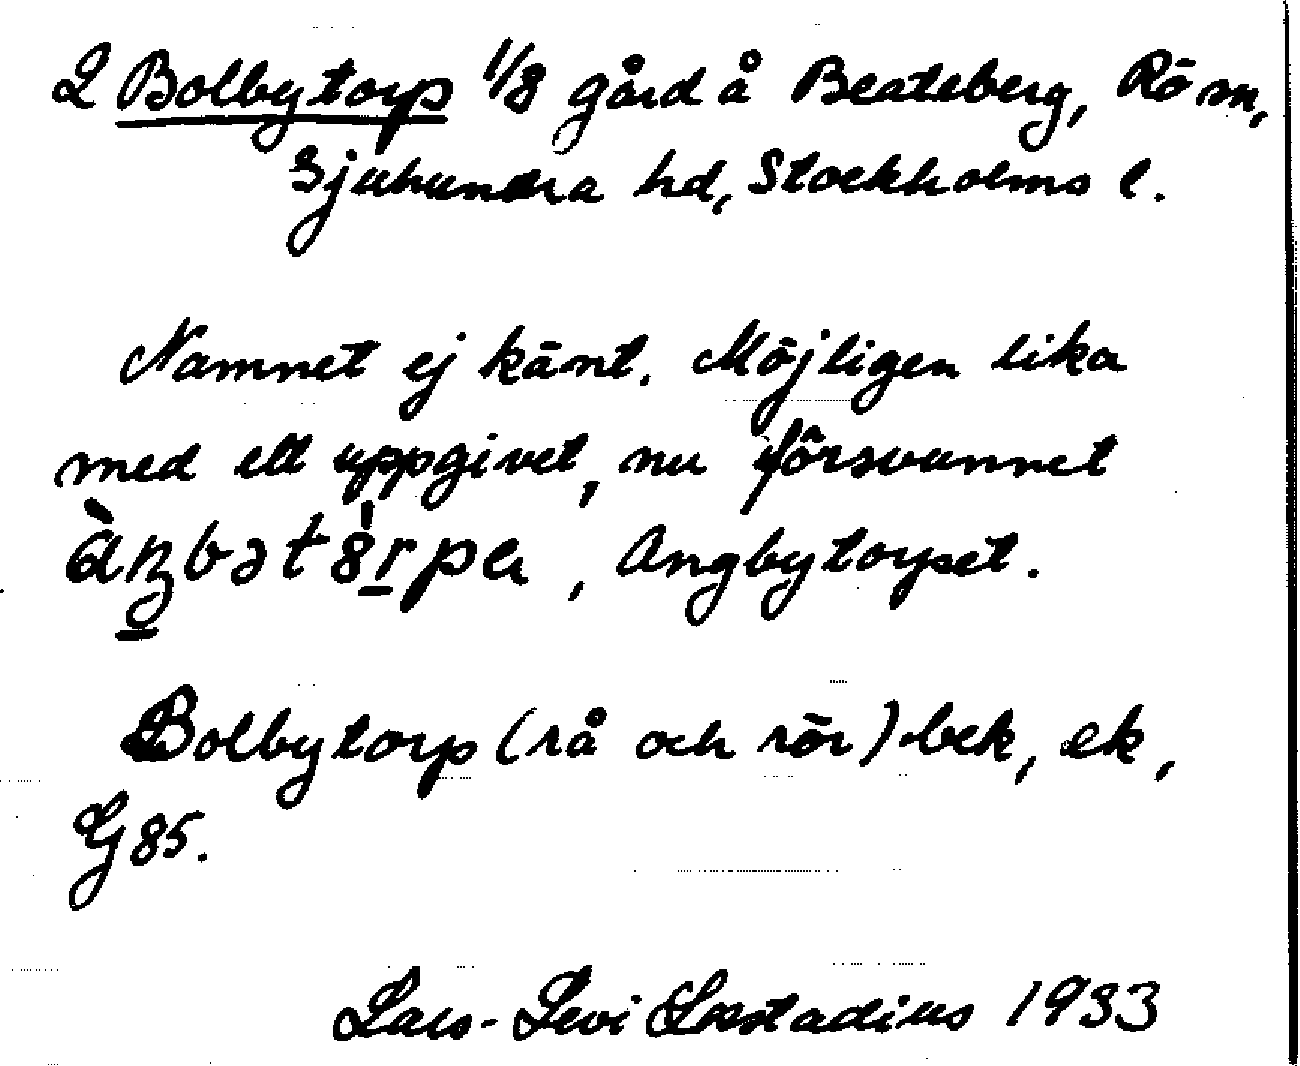 2 Bolbytorp 1/8 gård å Beateberg, Rö sn,
Sjuhundra hd, Stockholms l.
Namnet ej känt. Möjligen lika
med ett uppgivet, nu försvunnet
Angbytorpet.
Bolbytorp (rå och rör) bek, ek,
G 85.
Lars-Levi Læstadius 1933